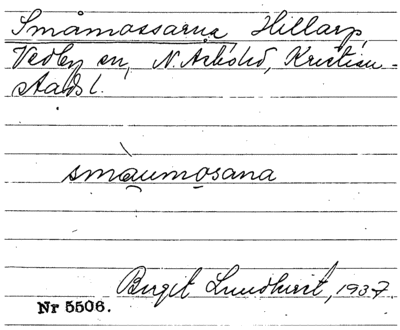 Småmossarna Hillarp,
Vedby sn, N. Åsbo hd, Kristian-
stads l.
smàumosana
Birgit Lundkvist, 1937.
Nr 5506.